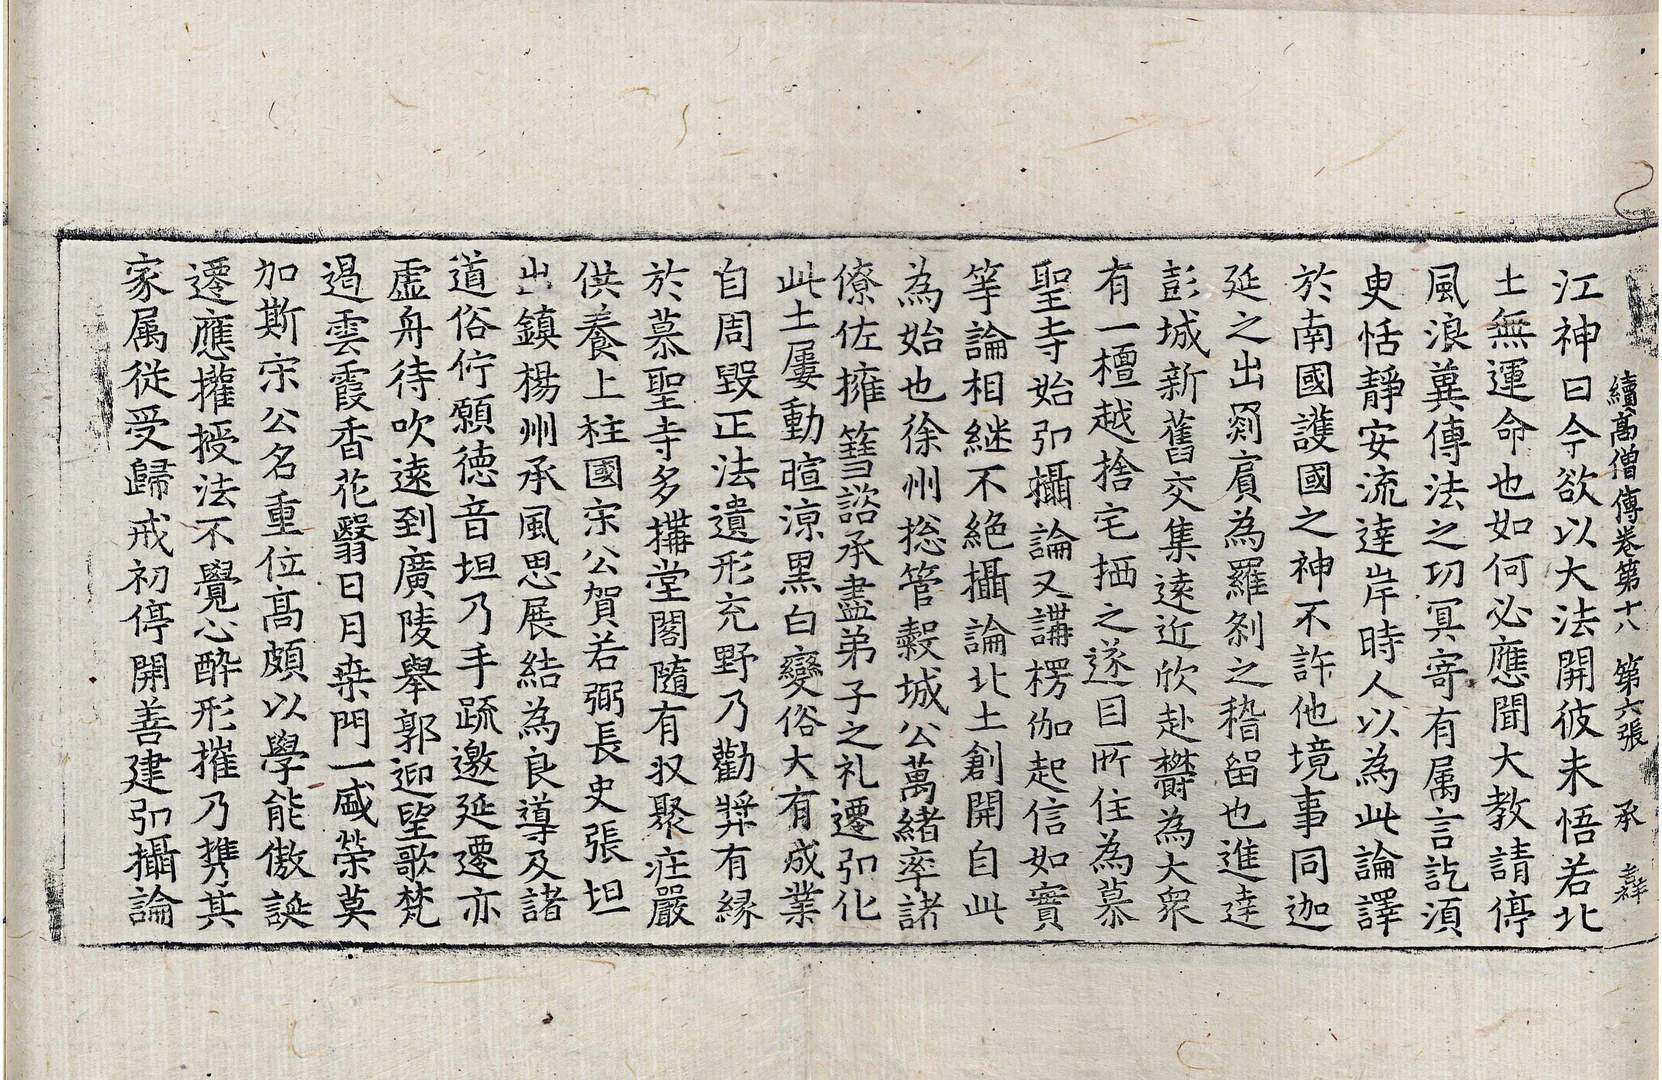 續高僧傳卷第十八　第六張　承
江神曰今欲以大法開彼未悟若北
土無運命也如何必應聞大教請停
風浪冀傳法之功冥寄有属言訖湏
㬰恬靜安流達岸時人以為此論譯
於南國護國之神不許他境事同迦
延之出罽賔為羅刹之稽留也進達
彭城新舊交集遠近欣赴欝為大衆
有一檀越捨宅栖之遂目所住為慕
聖寺始弘攝論又講楞伽起信如實
等論相継不絶攝論北土創開自此
為始也徐州捴管穀城公萬緒率諸
僚佐擁篲諮承盡弟子之礼遷弘化
此土屢動暄凉黒白變俗大有成業
自周毀正法遺形充野乃勸奨有縁
於慕聖寺多搆堂閣隨有収聚庄嚴
供養上柱國宋公賀若弼長史張坦
出鎮楊州承風思展結為良導及諸
道俗佇願德音坦乃手疏邀延遷亦
虚舟待吹遠到廣陵舉郭迎望歌梵
遏雲霞香花翳日月桒門一盛榮莫
加斯宋公名重位高頗以學能傲誕
遷應攉授法不覺心酔形摧乃携其
家属従受歸戒初停開善建弘攝論